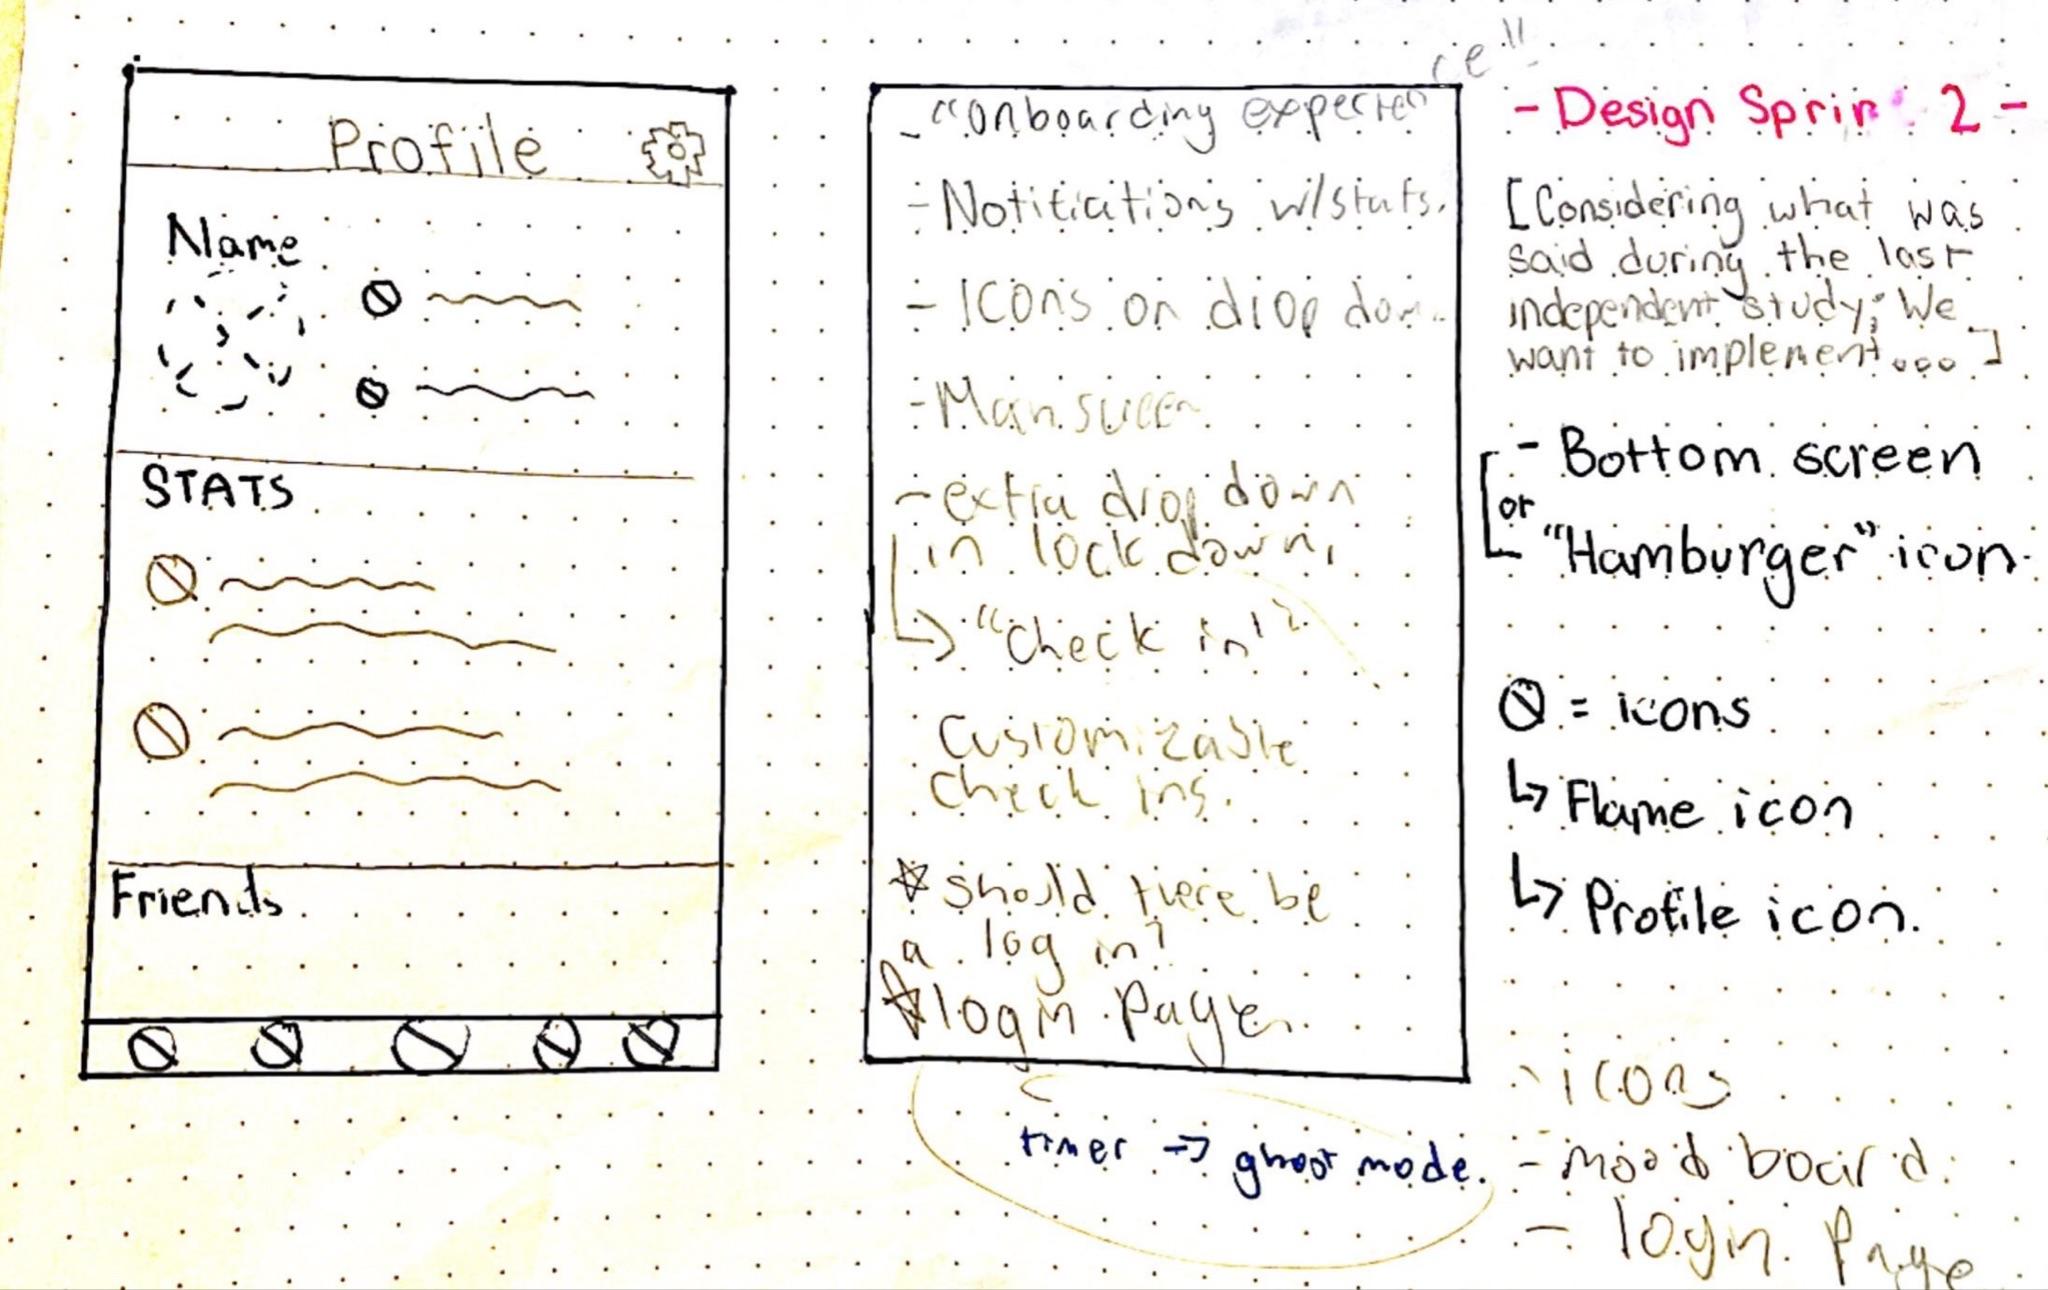 Profile
Name
STATS
Friends
- "Onboarding experien
ce"
- Notifications w/stats.
- Icons on drop down
- Main screen
- extra drop down
in lock down,
↳ "Check in"
Customizable
Check ins.
☆ Should there be
a log in?
☆ login Page
timer -> ghost mode.
- Design Sprin 2 -
[Considering what was
said during the last
independent study; We
want to implement... ]
- Bottom screen
or
"Hamburger" icon
= icons
↳ Flame icon
↳ Profile icon.
- icons
- mood board
- login Page